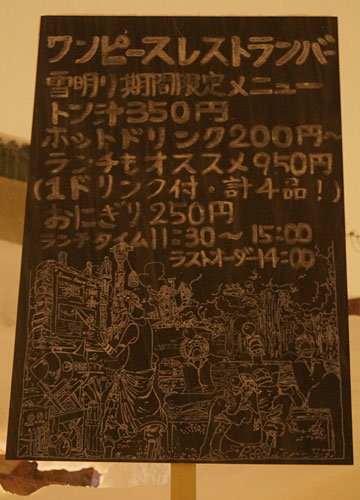 ワンピースレストランバー
雪明り期間限定メニュー
トン汁350円
ホットドリンク200円~
ランチもオススメ950円
(1ドリンク付・計4品!)
おにぎり250円
ランチタイム11:30~15:00
ラストオーダ14:00